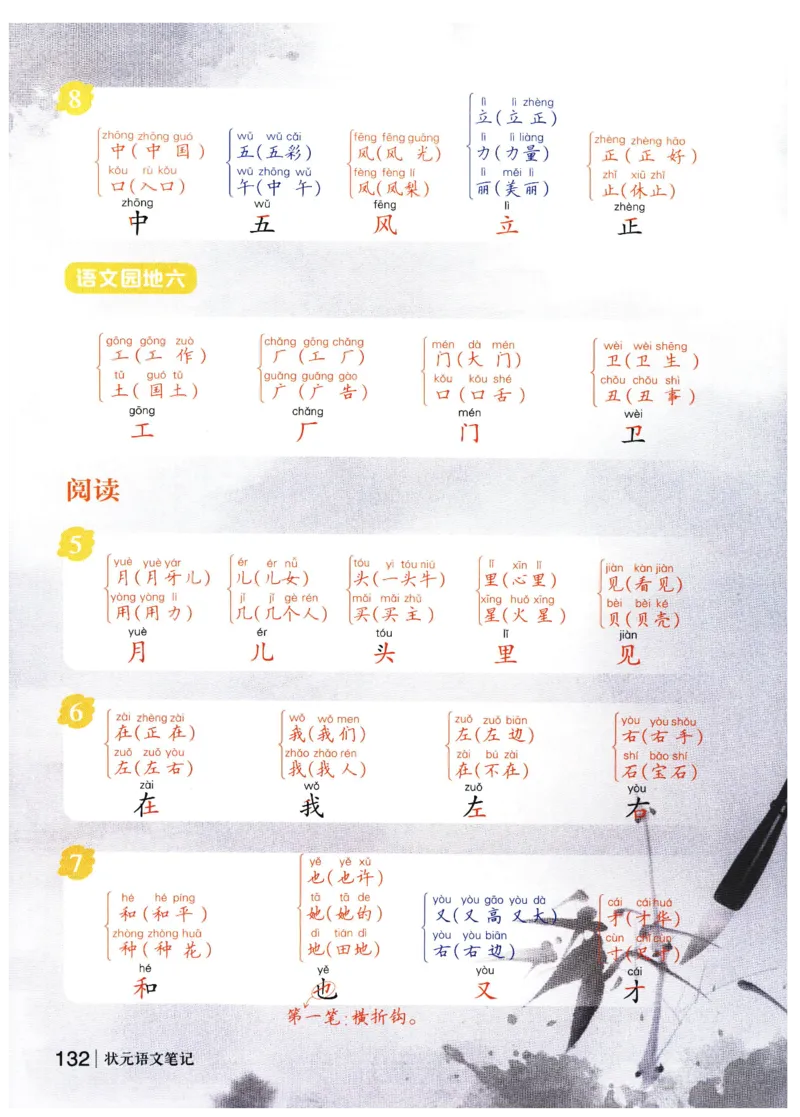 8
zhōng zhōng guó
中(中 国)
kǒu rù kǒu
口(入口)
zhōng
中
wǔ wǔ cǎi
五(五彩)
wǔ zhōng wǔ
午(中 午)
wǔ
五
fēng fēng guāng
风(风 光)
fèng fèng lí
凤(凤梨)
fēng
风
lì lì zhèng
立(立 正)
lì lì liàng
力(力量)
lì měi lì
丽(美丽)
lì
立
zhèng zhèng hǎo
正(正 好)
zhǐ xiū zhǐ
止(休止)
zhèng
正
语文园地六
gōng gōng zuò
工(工 作)
tǔ guó tǔ
土(国土)
gōng
工
chǎng gōng chǎng
厂(工 厂)
guǎng guǎng gào
广(广 告)
chǎng
厂
mén dà mén
门(大 门)
kǒu kǒu shé
口(口舌)
mén
门
wèi wèi shēng
卫(卫 生)
chǒu chǒu shì
丑(丑 事)
wèi
卫
阅读
5
yuè yuè yár
月(月牙儿)
yòng yòng lì
用(用 力)
yuè
月
ér ér nǚ
儿(儿女)
jǐ jǐ gè rén
几(几个人)
ér
儿
tóu yì tóu niú
头(一头牛)
mǎi mǎi zhǔ
买(买 主)
tóu
头
lǐ xīn lǐ
里(心里)
xīng huǒ xīng
星(火 星)
lǐ
里
jiàn kàn jiàn
见(看见)
bèi bèi ké
贝(贝壳)
jiàn
见
6
zài zhèng zài
在(正 在)
zuǒ zuǒ yòu
左(左 右)
zài
在
wǒ wǒ men
我(我们)
zhǎo zhǎo rén
找(找人)
wǒ
我
zuǒ zuǒ biān
左(左 边)
zài bú zài
在(不在)
zuǒ
左
yòu yòu shǒu
右(右 手)
shí bǎo shí
石(宝石)
yòu
右
7
hé hé píng
和(和 平)
zhòng zhòng huā
种(种 花)
hé
和
yě yě xǔ
也(也许)
tā tā de
她(她的)
dì tián dì
地(田地)
yě
也
第一笔:横折钩。
yòu yòu gāo yòu dà
又(又 高 又大)
yòu yòu biān
右(右 边)
yòu
又
cái cái huá
才(才华)
cùn chǐ cùn
寸(尺寸)
cái
才
132 | 状元语文笔记